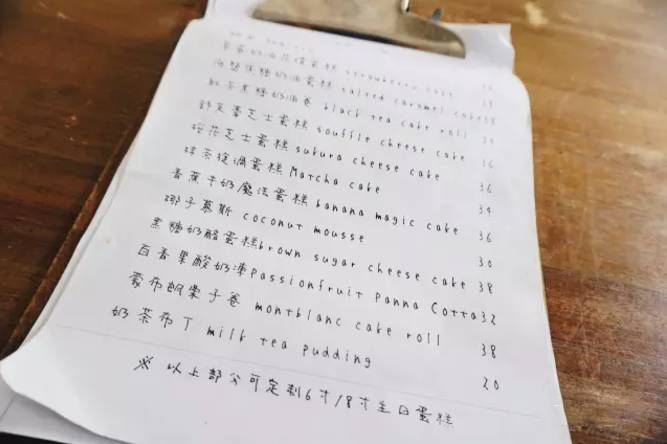 草莓奶油蛋糕 strawberry cake
海盐焦糖奶油蛋糕 salted caramel cake 38
红茶黑糖奶油卷 black tea cake roll 34
舒芙蕾芝士蛋糕 souffle cheese cake 36
樱花芝士蛋糕 sukura cheese cake 36
抹茶漩涡蛋糕 Matcha cake 34
香蕉牛奶魔法蛋糕 banana magic cake 36
椰子慕斯 coconut mousse 30
黑糖奶酪蛋糕 brown sugar cheese cake 38
百香果酸奶冻 Passionfruit Panna Cotta 32
蒙布朗栗子卷 montblanc cake roll 38
奶茶布丁 milk tea pudding 20
※ 以上部分可定制6寸/8寸生日蛋糕